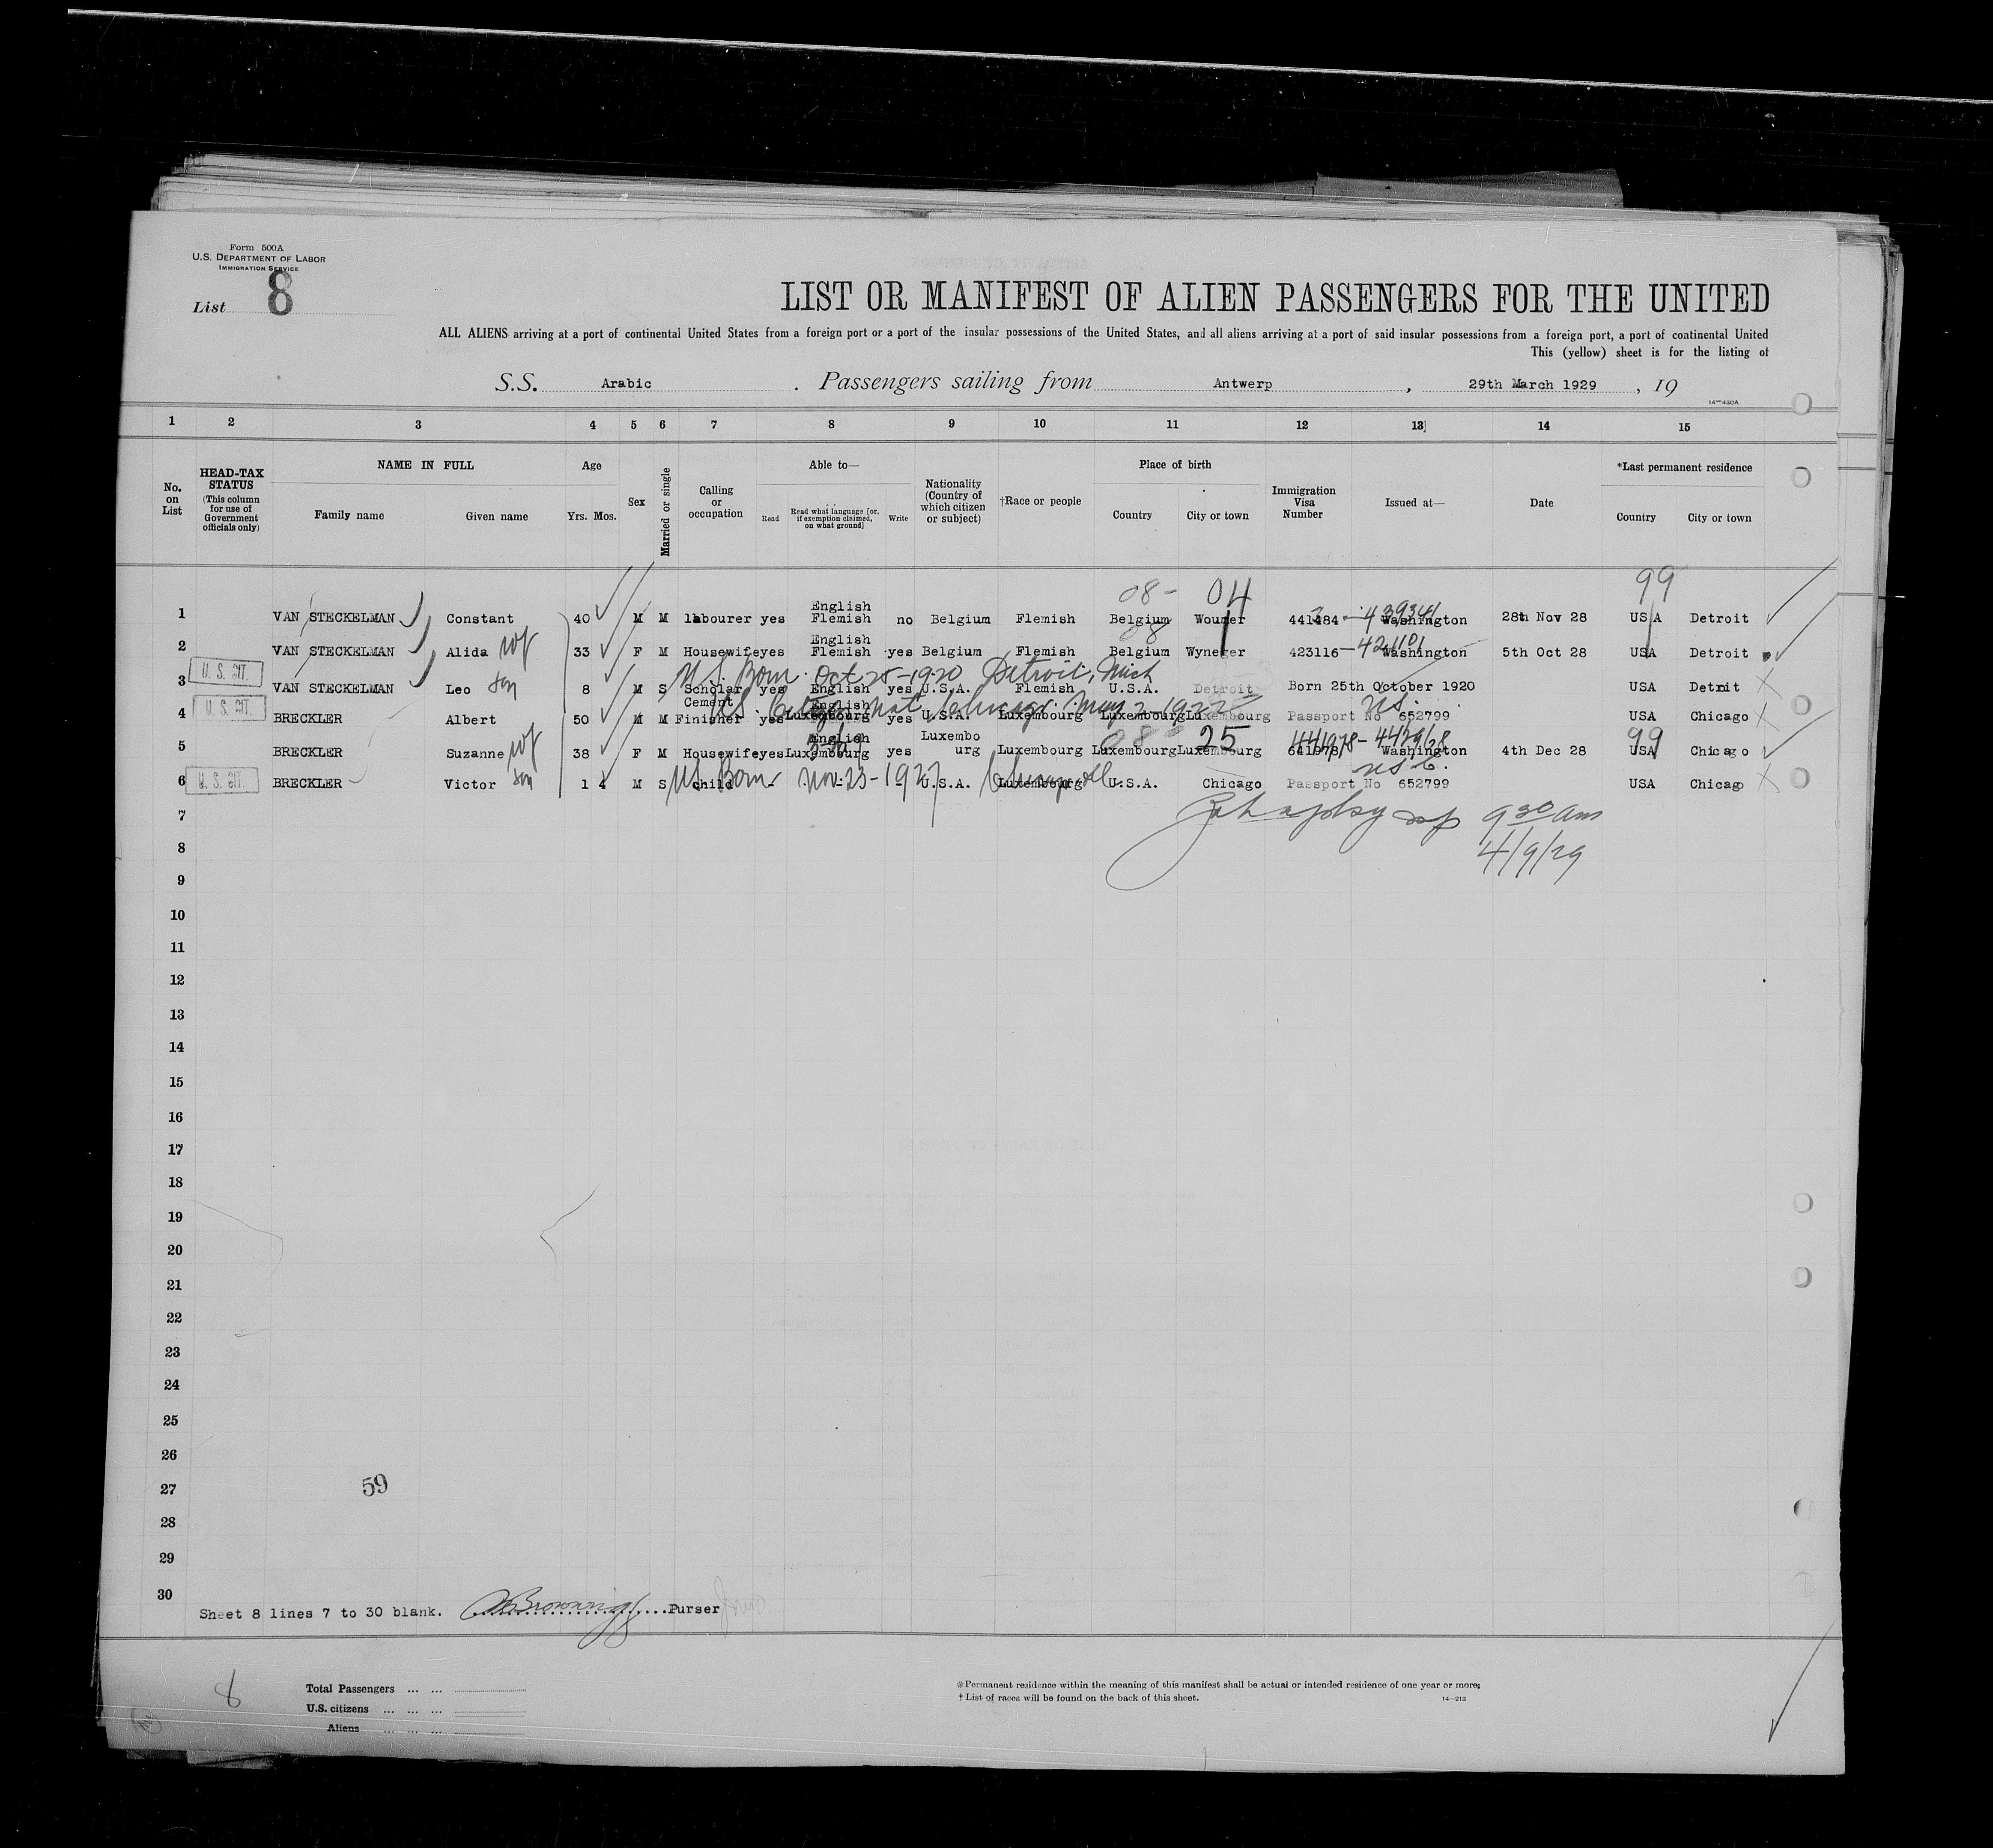 Form 500A
U.S. DEPARTMENT OF LABOR
IMMIGRATION SERVICE
List 8
LIST OR MANIFEST OF ALIEN PASSENGERS FOR THE UNITED
ALL ALIENS arriving at a port of continental United States from a foreign port or a port of the insular possessions of the United States, and all aliens arriving at a port of said insular possessions from a foreign port, a port of continental United
This (yellow) sheet is for the listing of
S.S. Arabic . Passengers sailing from Antwerp , 29th March 1929 , 19
14—430A
1 2 3 4 5 6 7 8 9 10 11 12 13 14 15
No. on List
HEAD-TAX STATUS (This column for use of Government officials only)
NAME IN FULL
Family name Given name
Age
Yrs. Mos.
Sex
Married or single
Calling or occupation
Able to—
Read Read what language [or, if exemption claimed, on what ground] Write
Nationality (Country of which citizen or subject)
†Race or people
Place of birth
Country City or town
Immigration Visa Number
Issued at—
Date
*Last permanent residence
Country City or town
08- 04 99
1 VAN STECKELMAN Constant 40 M M labourer yes English Flemish no Belgium Flemish Belgium Washington 28th Nov 28 USA Detroit
2 VAN STECKELMAN Alida wf 33 F M Housewife yes English Flemish yes Belgium Flemish Belgium 423116 Washington 5th Oct 28 USA Detroit
U. S. CIT.
U.S. Born Oct 25-1920 Detroit, Mich
3 VAN STECKELMAN Leo son 8 M S Scholar yes English yes U.S.A. Flemish U.S.A. Detroit Born 25th October 1920 USA Detroit
U. S. CIT.
US. Citizen Nat. Chicago. May 2-1922 US.
4 BRECKLER Albert 50 M M Cement Finisher yes English Luxembourg yes U.S.A. Luxembourg Luxembourg Luxembourg Passport No 652799 USA Chicago
08 25 99
5 BRECKLER Suzanne wf 38 F M Housewife yes English Luxembourg yes Luxembourg Luxembourg Luxembourg Luxembourg 641978 Washington 4th Dec 28 USA Chicago
U. S. CIT.
US Born Nov-23-1927 Chicago Ill. US C.
6 BRECKLER Victor son 1 4 M S child - - - U.S.A. Luxembourg U.S.A. Chicago Passport No 652799 USA Chicago
7
9 30 am
8
4/9/29
9
10
11
12
13
14
15
16
17
18
19
20
21
22
23
24
25
26
27
59
28
29
30
Sheet 8 lines 7 to 30 blank. Browning Purser
8
Total Passengers ... ...
U.S. citizens ... ... ...
Aliens ... ... ...
* Permanent residence within the meaning of this manifest shall be actual or intended residence of one year or more.
† List of races will be found on the back of this sheet.
14—213